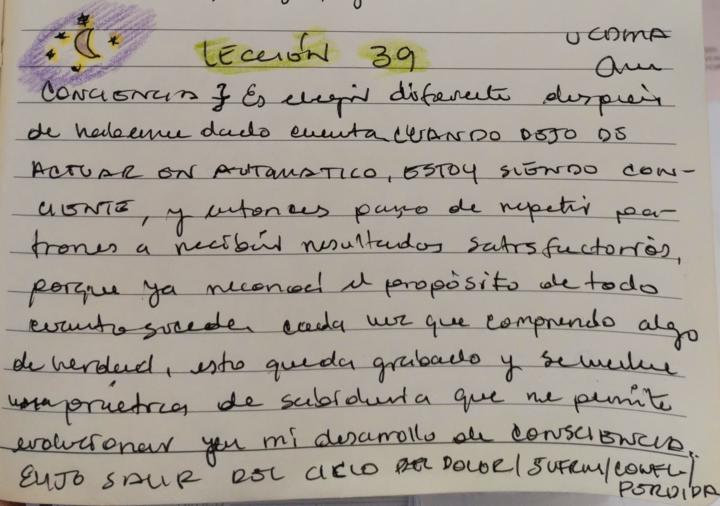 LECCIÓN 39
UCDMA
CONCIENCIA } Es elegir diferente después
de haberme dado cuenta CUANDO DEJO DE
ACTUAR EN AUTOMATICO, ESTOY SIENDO CON-
CIENTE, y entonces paso de repetir pa-
trones a recibir resultados satisfactorios,
porque ya reconocí el propósito de todo
cuanto sucede. cada vez que comprendo algo
de verdad, esto queda grabado y se vuelve
práctica de sabiduría que me permite
evolucionar y en mi desarrollo de CONSCIENCIA.
ELIJO SALIR DEL CICLO DEL DOLOR/SUFRIM/CONFL/
PERDIDA